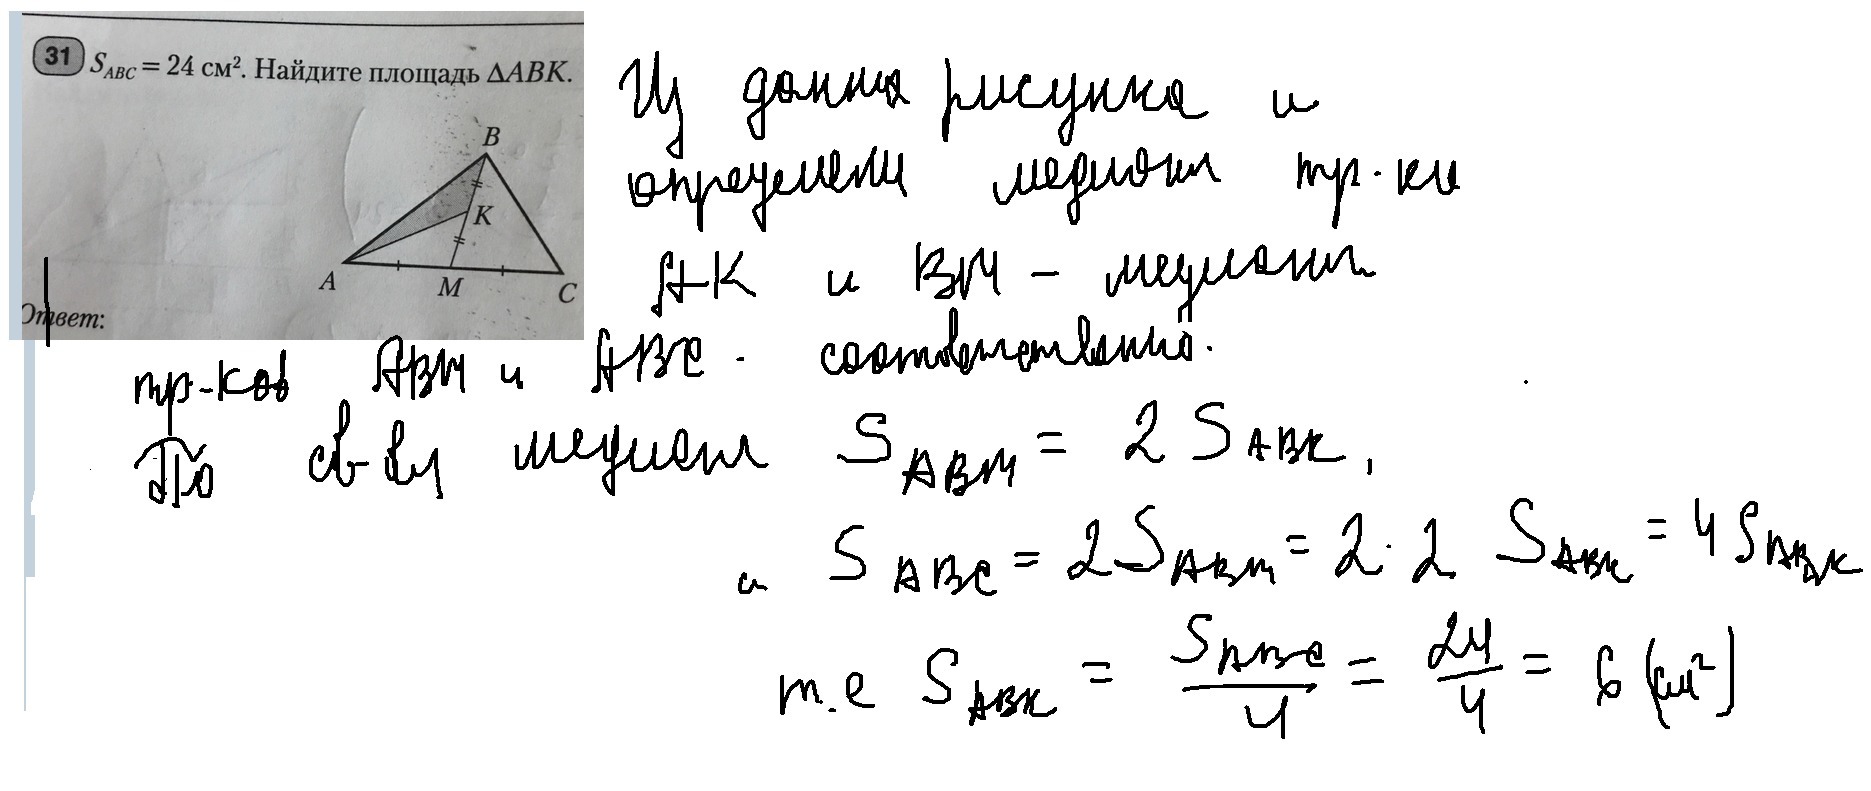 31 S_ABC = 24 см². Найдите площадь ΔABK.
B
K
A
M
C
Ответ:
Из данных рисунка и
определения медианы тр.ки
AK и BM – медианы
тр-ков ABM и ABC. соответственно.
По св-ву медианы S_ABM = 2 S_ABK,
и S_ABC = 2 S_ABM = 2·2 S_ABK = 4 S_ABK
т.е S_ABK = S_ABC/4 = 24/4 = 6 (см²)